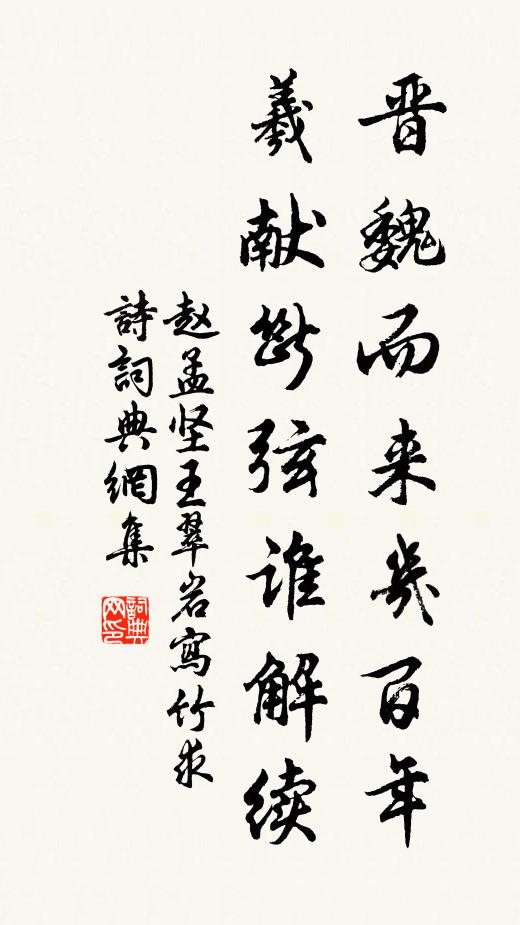 晋魏而来幾百年
羲献断弦谁解续
赵孟坚王翠岩寫竹求
詩詞典網集
詞典网印